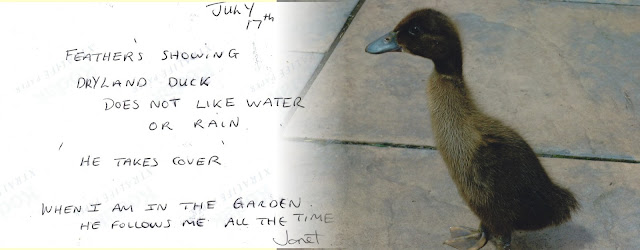 JULY
17th
FEATHER'S SHOWING
DRYLAND DUCK
DOES NOT LIKE WATER
OR RAIN
' HE TAKES COVER '
WHEN I AM IN THE GARDEN.
HE FOLLOWS ME ALL THE TIME
Janet